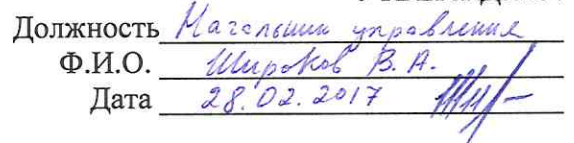 Должность Начальник управления
Ф.И.О. Широков В.А.
Дата 28.02.2017